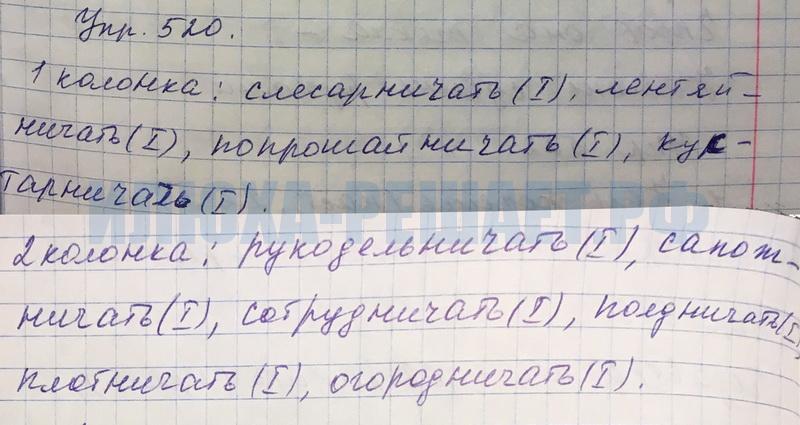 Упр. 520.
1 колонка: слесарничать (I), лентяй-
ничать (I), попрошайничать (I), кус-
тарничать (I).
ИЛЮХА-РЕШАЕТ.РФ
2 колонка: рукодельничать (I), сапож-
ничать (I), сотрудничать (I), полдничать (I),
плотничать (I), огородничать (I).